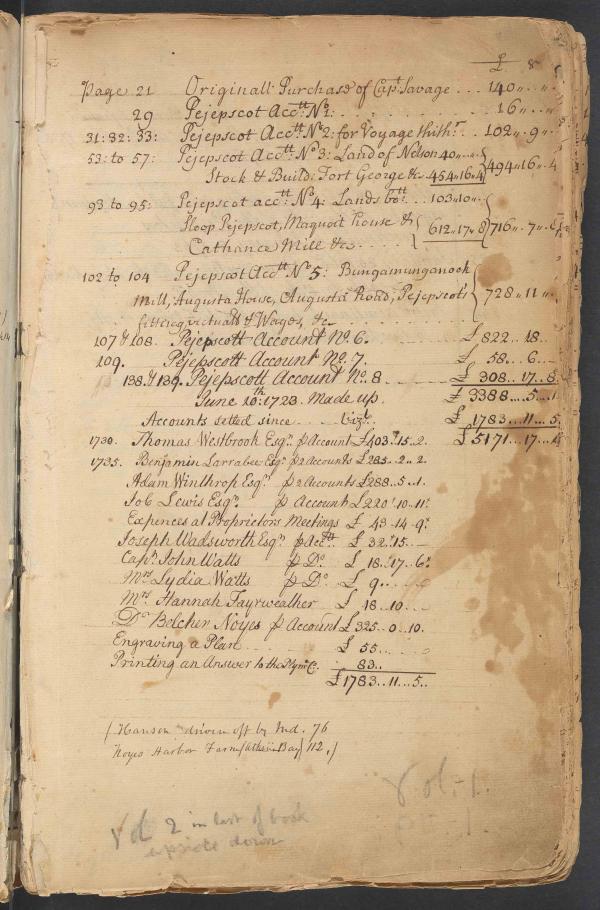 £ s
Page 21 Originall Purchase of Capt Savage ... 140,, .. ..
29 Pejepscot Acctt: No1: . . . . . 16,, .. ..
31:32:33: Pejepscot Acctt: No2: for Voyage thithr .. 102,, 9,,
53: to 57: Pejepscot Acctt: No3: Land of Nelson 40,, .. ..
Stock & Build: Fort George &c 454,,16,,4 494,,16,,4
93 to 95: Pejepscot acctt: No4: Lands bott .. 103,,10,,
Sloop Pejepscot, Maquoit house & 612,,17,,8 716,,7,,
Cathance Mill &c . . . .
102 to 104 Pejepscot Acctt No5: Bungamunganock
Mill, Augusta House, Augusta Road, Pejepscots
fitting victualls & Wages, &c 728,,11,,
107 & 108. Pejepscott Account No. 6. £ 822..18..
109. Pejepscott Account No. 7. £ 58..6..
138. & 139. Pejepscott Account No. 8 £ 308..17..8
June 10th: 1728. Made up. £ 3388....5..1
Accounts setled since .... vizt. £ 1783...11...5
1730. Thomas Westbrook Esqr. p Account £403..15..2. £5171...17..
1735. Benjamin Larrabee Esqr p 2 Accounts £285..2..2.
Adam Winthrop Esqr p 2 Accounts £288..5..1.
Job Lewis Esqr p Account £220..10..11.
Expences at Proprietors Meetings £ 43-14-9.
Joseph Wadsworth Esqr p Acctt £ 32..15..
Capn. John Watts p Do £ 18..17..6.
Mrs Lydia Watts p Do £ 9....
Mrs. Hannah Fayrweather £ 18..10...
Dr Belcher Noyes p Account £325..0..10.
Engraving a Plan . . . . £ 55...
Printing an Answer to the Plymo C. 83..
£1783..11...5..
(Hansen driven off by Ind. 76
Noyes Harbor Farm 112,)
Vol-1.
Vol 2 in last of book
upside down